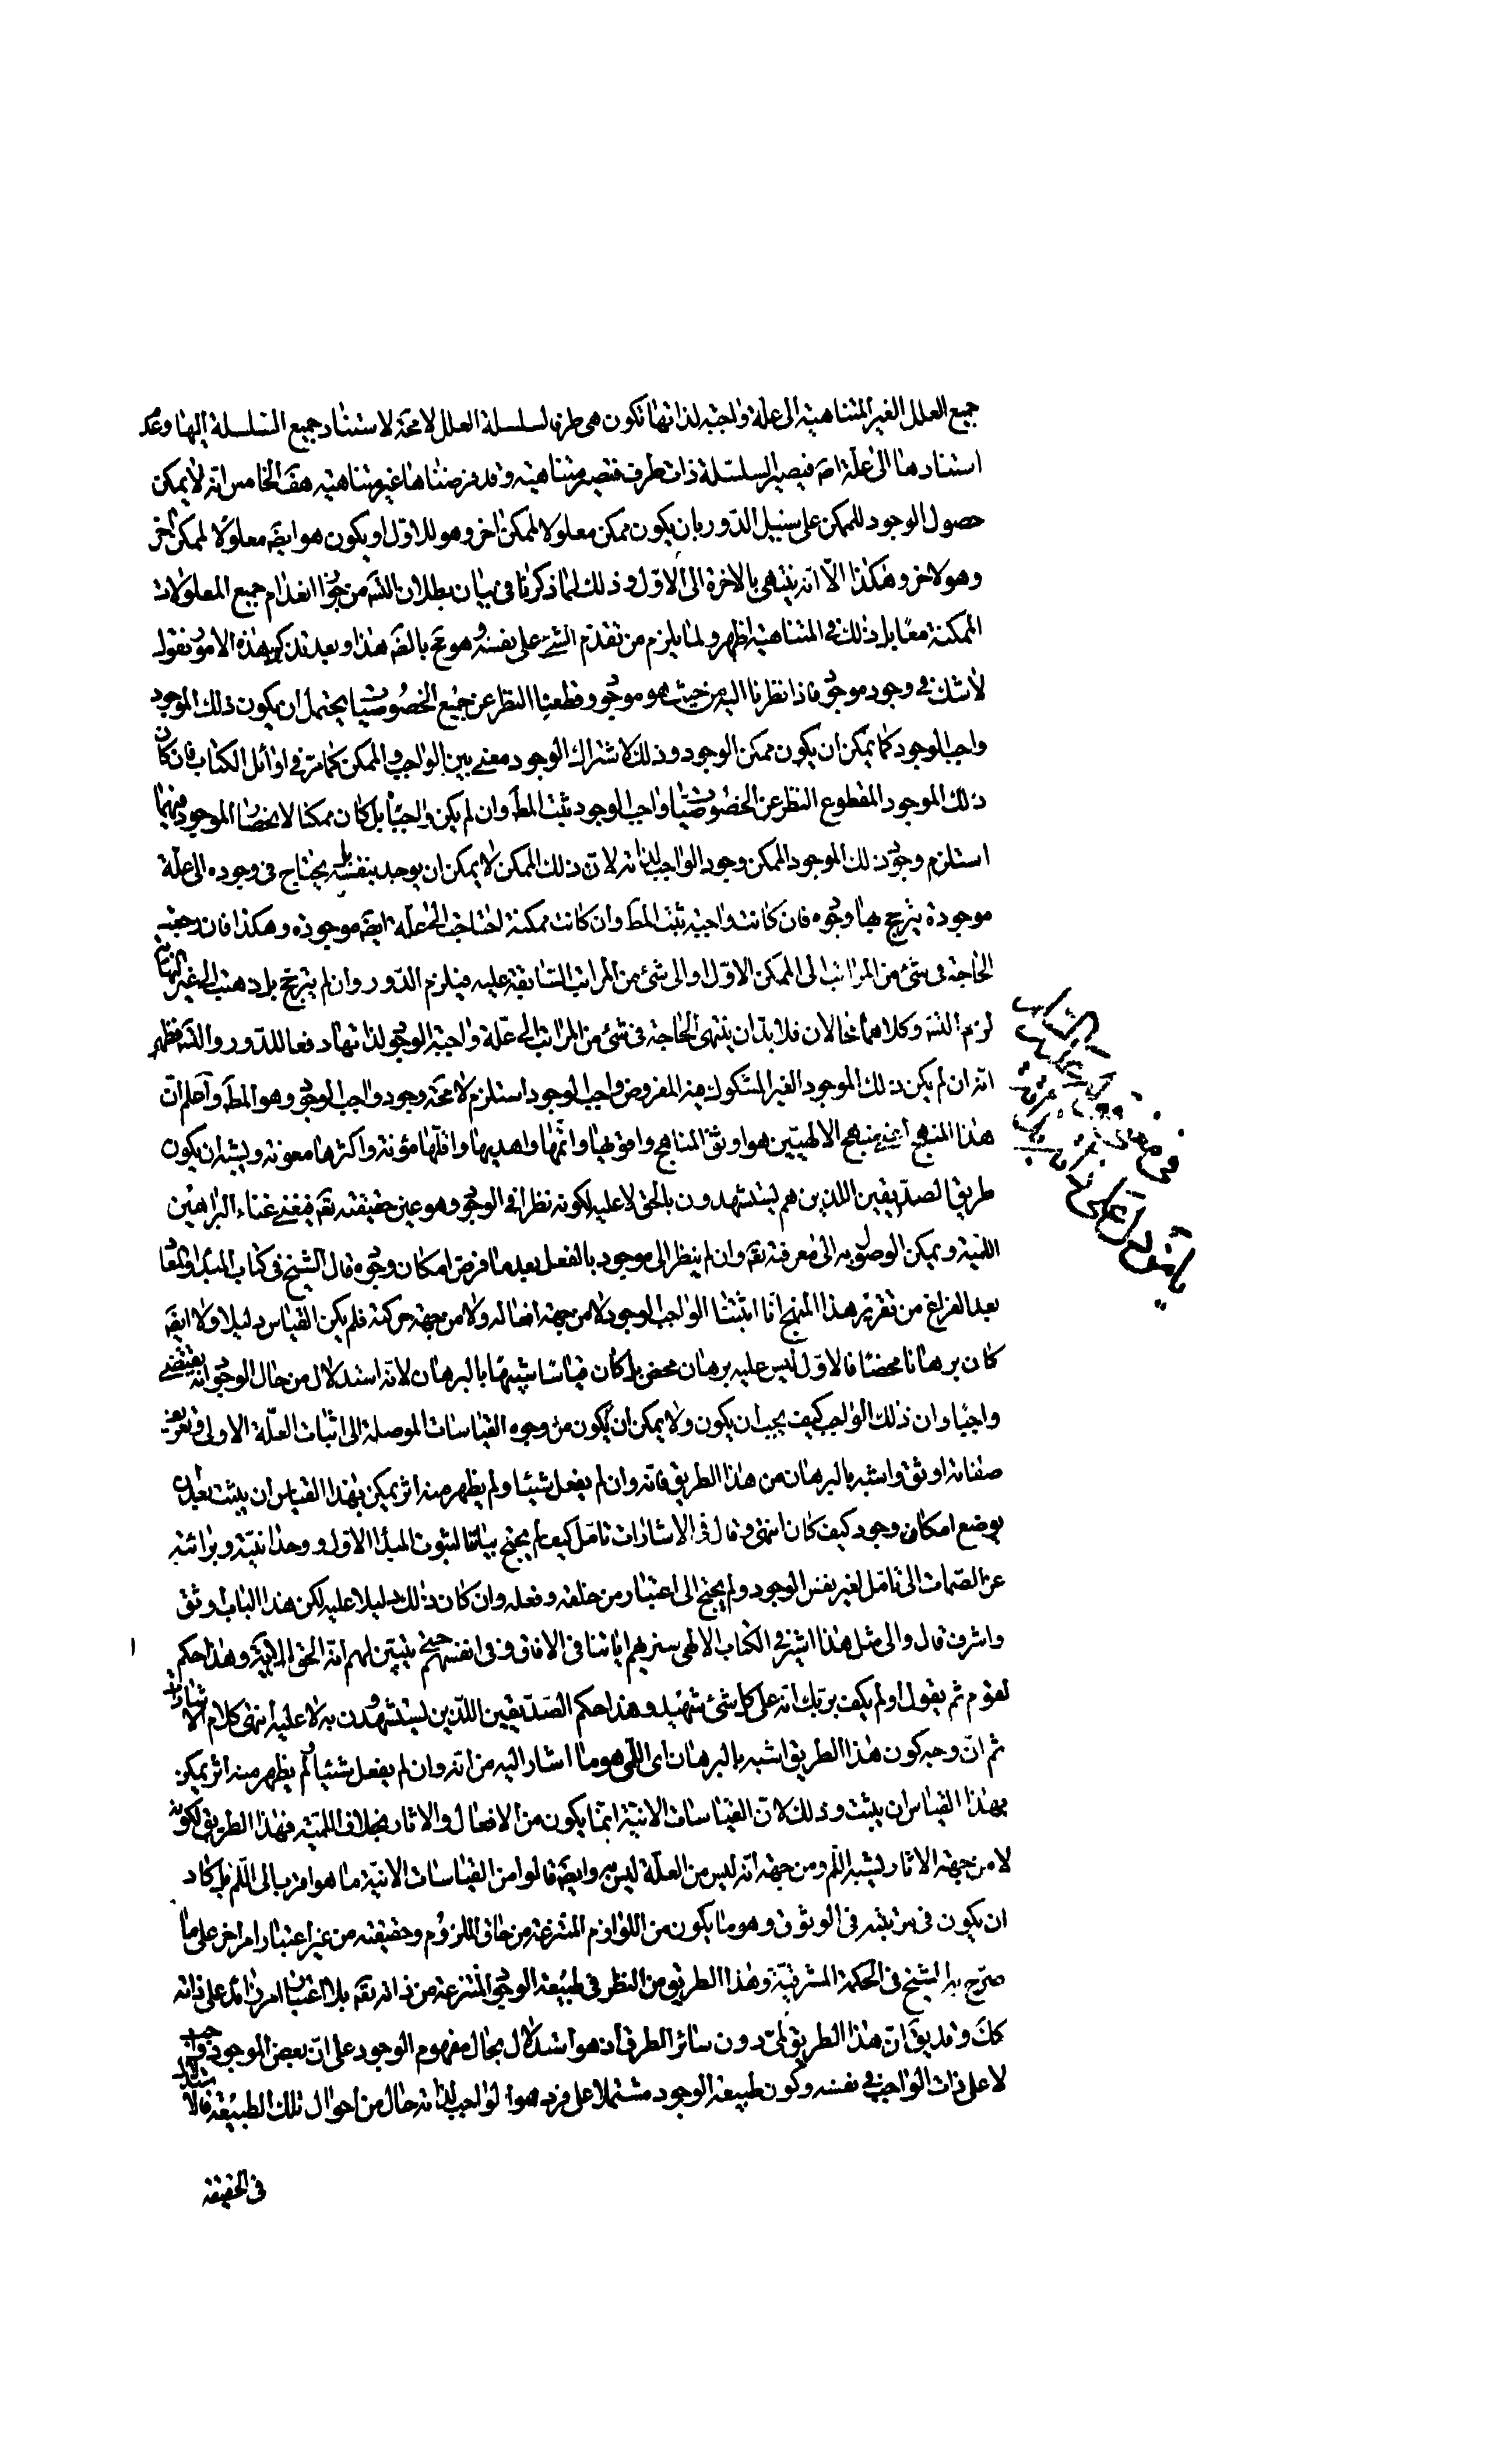 جميع العلل الغير المتناهية الى علة واجبة لذاتها تكون هى طرف لسلسلة العلل لا محة لاستناد جميع السلسلة اليها وعد
استنادها الى علة اصه فيصير السلسلة ذات طرف فتصير متناهية وقد فرضناها غير متناهية هف الخامس انه لا يمكن
حصول الوجود للممكن على سبيل الدور بان يكون ممكن معلولا لممكن اخر وهو للاول او يكون هو ايضه معلولا لممكن اخر
وهو لاخر وهكذا الا انه ينتهى بالاخرة الى الاول وذلك لما ذكرنا فى بيان بطلان التسه من جواز انعدام جميع المعلولات
الممكنة معا بل ذلك فى المتناهية اظهر ولما يلزم من تقدم الشئ على نفسه وهو مح بالضه هذا وبعد تذكير هذه الامور نقول
لا شك فى وجود موجود فاذا نظرنا اليه من حيث هو موجود وقطعنا النظر عن جميع الخصوصيات يحتمل ان يكون ذلك الموجود
واجب الوجود كما يمكن ان يكون ممكن الوجود وذلك لاشتراك الوجود معنى بين الواجب والممكن كما مر فى اوائل الكتاب فان كان
ذلك الموجود المقطوع النظر عن الخصوصيات واجب الوجود ثبت المط وان لم يكن واجبا بل كان ممكنا لانحصار الموجود فيهما
استلزم وجود ذلك الموجود الممكن وجود الواجب لذاته لان ذلك الممكن لا يمكن ان يوجد بنفسه بل يحتاج فى وجوده الى علة
موجودة يترجح بها وجوده فان كانت واجبة ثبت المط وان كانت ممكنة احتاجت الى علة ايضه موجودة وهكذا فان رجعت
الحاجة فى شئ من المراتب الى الممكن الاول او الى شئ من المراتب السابقة عليه فيلزم الدور وان لم يترجع بل ذهبت الى غير النهاية
لزم التسه وكلاهما محالان فلا بد ان ينتهى الحاجة فى شئ من المراتب الى علة واجبة الوجود لذاتها دفعا للدور والتسه فظهر
انه ان لم يكن ذلك الموجود الغير المشكوك فيه المفروض واجب الوجود استلزم لا محة وجود واجب الوجود وهو المط واعلم ان
هذا المنهج اعنى منهج الالهيين هو اوثق المناهج واقويها واتمها واهديها واقلها مؤنة واكثرها معونة ويشبه ان يكون
طريق الصديقين اللذين هم يستشهدون بالحق لا عليه لكونه نظرا فى الوجود وهو عين حقيقته تعه فيغنى غناء البراهين
اللمية ويمكن الوصول به الى معرفته تعه وان لم ينظر الى موجود بالفعل بعد ما فرض امكان وجوده قال الشيخ فى كتاب المبدأ والمعاد
بعد الفراغ من تقرير هذا المنهج انا اثبتنا الواجب الوجود لا من جهة افعاله ولا من جهة حركته فلم يكن القياس دليلا ولا ايضه
كان برهانا محضا فالاول ليس عليه برهان محض بل كان قياسا شبيها بالبرهان لانه استدلال من حال الوجود انه يقتضى
واجبا وان ذلك الواجب كيف يجب ان يكون ولا يمكن ان يكون من وجوه القياسات الموصلة الى اثبات العلة الاولى وتعريف
صفاته اوثق واشبه بالبرهان من هذا الطريق فانه وان لم يفعل شيئا ولم يظهر منه اثر يمكن بهذا القياس ان يثبت بعد ان
يوضع امكان وجود كيف كان انتهى وقال فى الاشارات تامل كيف لم يحتج بياننا لثبوت المبدأ الاول و وحدانيته وبرائته
عن الصمات الى تامل لغير نفس الوجود ولم يحتج الى اعتبار من خلقه وفعله وان كان ذلك دليلا عليه لكن هذا الباب اوثق
واشرف قال والى مثل هذا اشير فى الكتاب الالهى سنريهم اياتنا فى الافاق وفى انفسهم حتى يتبين لهم انه الحق وهذا حكم
لقوم ثم يقول اولم يكف بربك انه على كل شئ شهيد وهذا حكم الصديقين اللذين يستشهدون به لا عليه انتهى كلام الاشارات
ثم ان وجه كون هذا الطريق اشبه بالبرهان اى اللمى هو ما اشار اليه من انه وان لم يفعل شيئا ولم يظهر منه اثر يمكن
بهذا القياس ان يثبت وذلك لان القياسات الانية انما يكون من الافعال والاثار بخلاف اللمية فهذا الطريق لكونه
لا من جهة الاثار يشبه اللم ومن جهة انه ليس من العلة ليس به وايضه قالوا من القياسات الانية ما هو اقرب الى اللم بل كاد
ان يكون فى مرتبته فى الوثوق وهو ما يكون من اللوازم المنتزعة من حاق الملزوم وحقيقته من غير اعتبار امر اخر على ما
صرح به الشيخ فى الحكمة المشرقية وهذا الطريق من النظر فى طبيعة الوجود المنتزعة من ذاته تعه بلا اعتبار امر زائد على ذاته
كك وقد يق ان هذا الطريق لمى دون سائر الطرق اذ هو استدلال بحال مفهوم الوجود على ان بعض الموجود واجب
لا على ذات الواجب فى نفسه وكون طبيعة الوجود مشتملا على فرد هو الواجب لذاته حال من احوال تلك الطبيعة فالاستدلال
فى الحقيقة